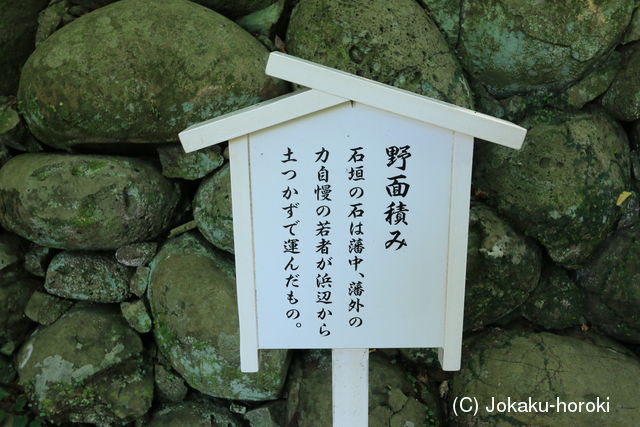 野面積み
石垣の石は藩中、藩外の
力自慢の若者が浜辺から
土つかずで運んだもの。
(C) Jokaku-horoki